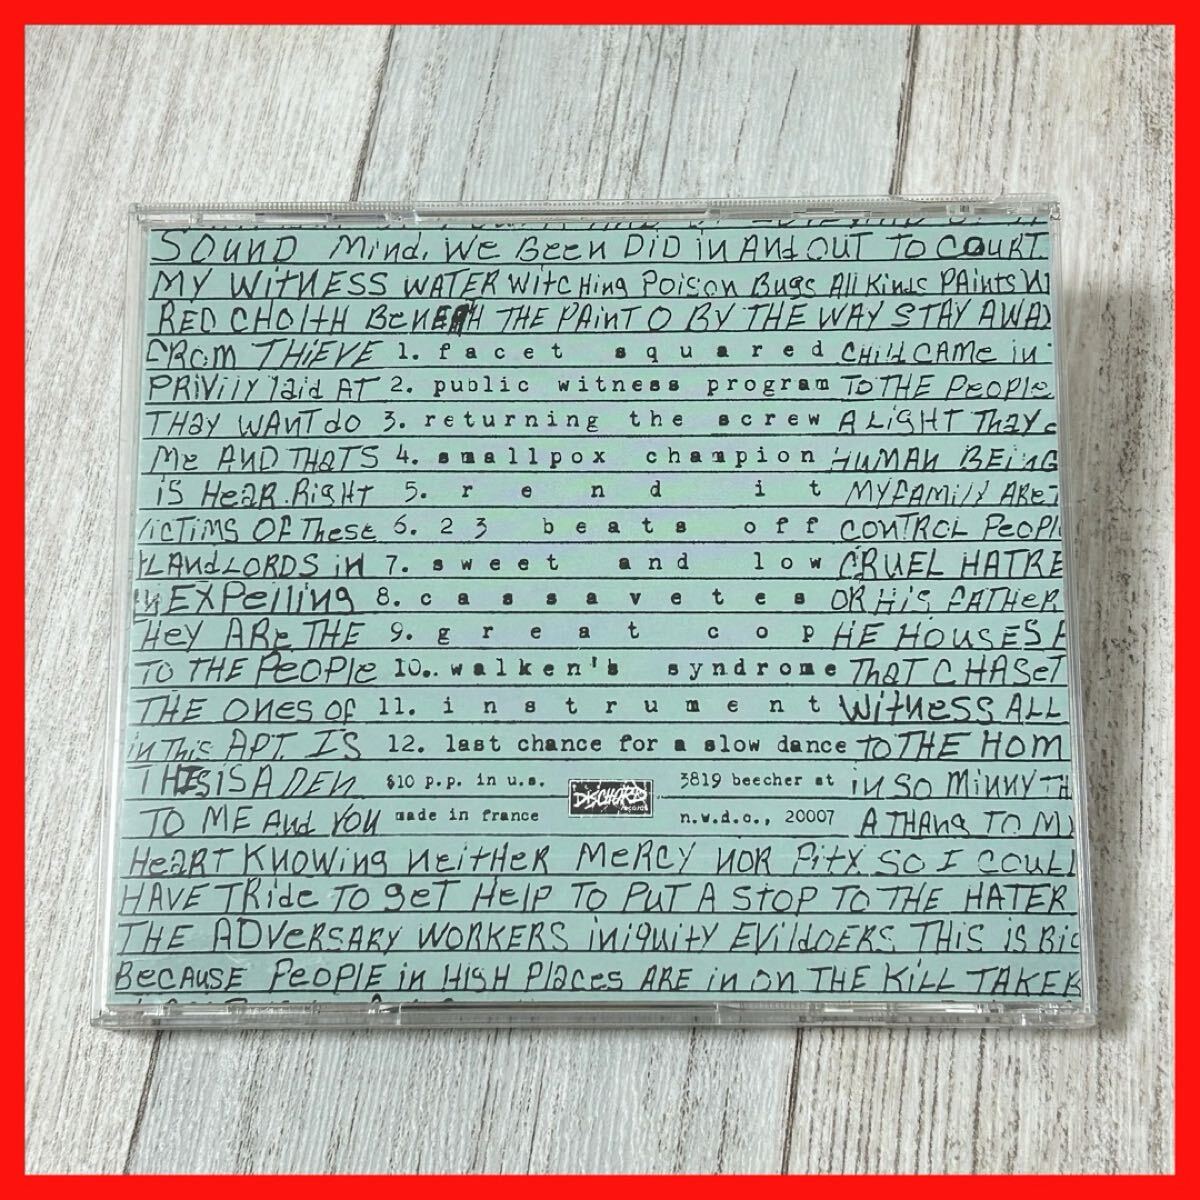 SOUND MiND, WE BEEN DiD iN ANd OUT TO COURT.
MY WiTNESS WATER WiTCHing POiSON BUgS All KiNdS PAiNTS
RED CHOITH BENEATH THE PAiNT O BY THE WAY STAY AWAY
FROM THiEVE 1. facet squared CHild CAME iN
PRiVilY laid AT 2. public witness program TO THE PEOPlE
THAY WANT do 3. returning the screw A LiGHT THAY
ME AND THATS 4. smallpox champion HUMAN BEiNG
iS HEAR. RiGHT 5. rend it MY FAMilY ARE
ViCTiMS OF THESE 6. 23 beats off CONTROL PEOPl
LANdLORDS iN 7. sweet and low CRUEL HATRE
EXPElliNg 8. cassavetes OR HiS FATHER
HEY ARE THE 9. great cop HE HOUSES
TO THE PEOPlE 10. walken's syndrome THAT CHASET
THE ONES OF 11. instrument WiTNESS ALL
iN THiS APT. IS 12. last chance for a slow dance TO THE HOM
THiS iS A DEN $10 p.p. in u.s. DISCHORD records 3819 beecher st iN SO MiNNY TH
TO ME ANd YOU made in france n.w.d.c., 20007 A THANg TO MY
HEART KNOWiNg NEiTHER MERCY NOR PiTY SO I COUL
HAVE TRidE TO gET HElP TO PUT A STOP TO THE HATER
THE ADVERSARY WORKERS iNiqUiTY EVildOERS. THiS iS BiG
BECAUSE PEOPLE iN HiGH PlACES ARE iN ON THE KiLL TAKER